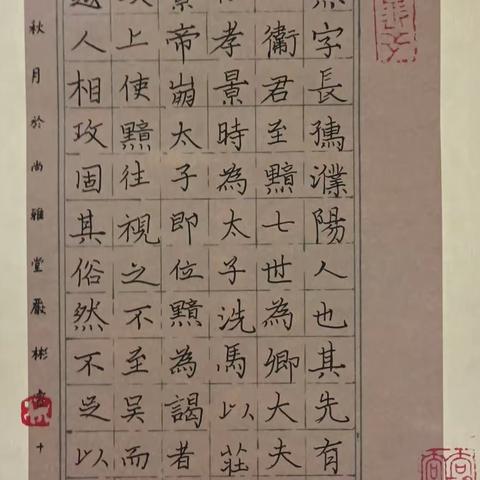 字長孺濮陽人也其先有
衞君至黯七世為卿大夫
孝景時為太子洗馬以莊
帝崩太子即位黯為謁者
上使黯往視之不至吳而
人相攻固其俗然不足以
秋月於尚雅堂嚴彬書
十